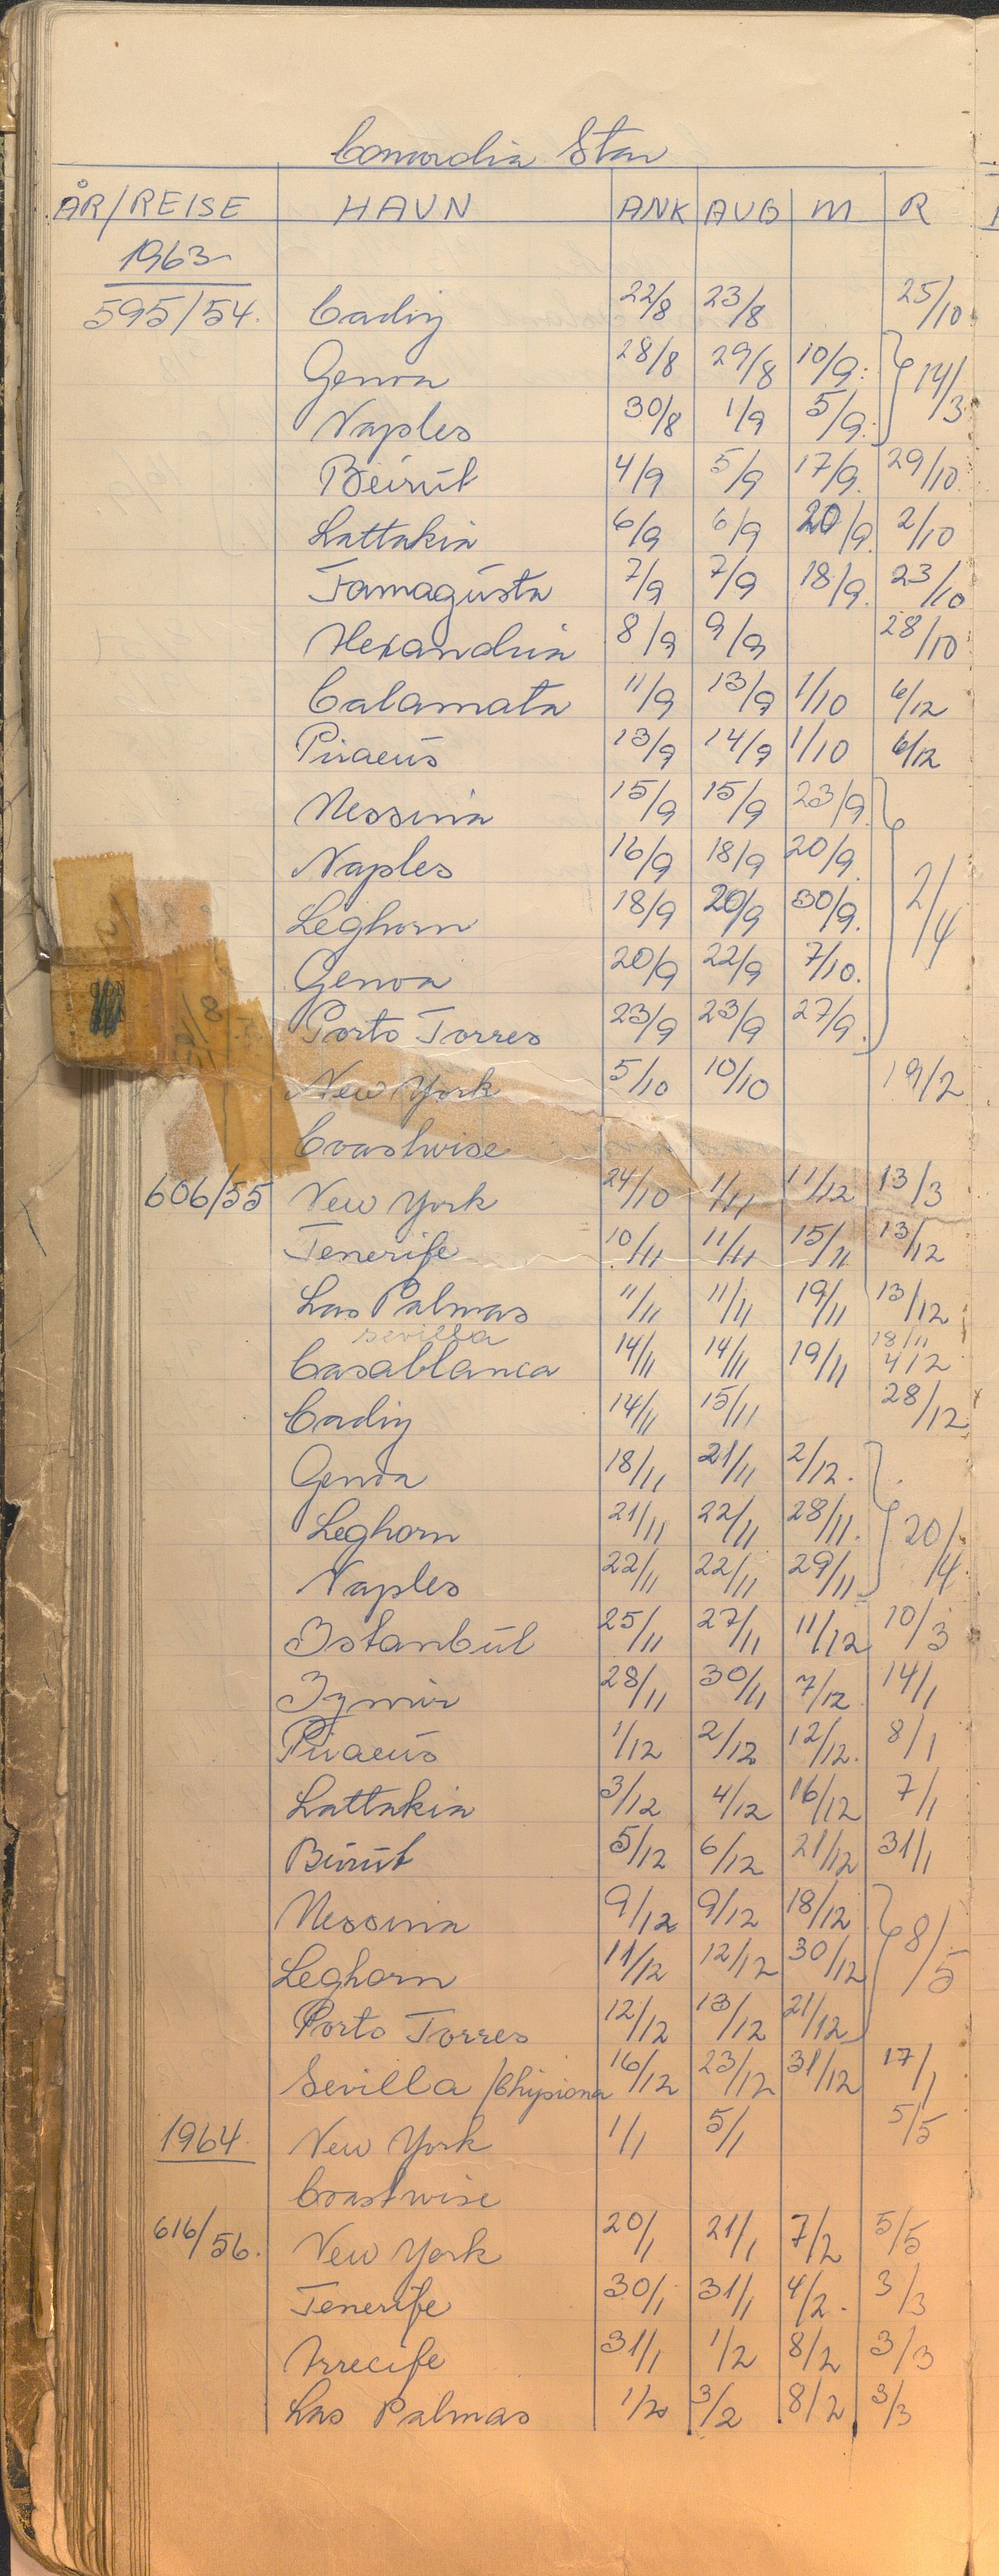 Concordia Star
ÅR/REISE HAVN ANK AVG M R
1963
595/54. Cadiz 22/8 23/8 25/10
Genoa 28/8 29/8 10/9
Naples 30/8 1/9 5/9 14/3
Beirut 4/9 5/9 17/9 29/10
Lattakia 6/9 6/9 20/9 2/10
Famagusta 7/9 7/9 18/9 23/10
Alexandria 8/9 9/9 28/10
Calamata 11/9 13/9 1/10 6/12
Piraeus 13/9 14/9 1/10 6/12
Messina 15/9 15/9 23/9
Naples 16/9 18/9 20/9
Leghorn 18/9 20/9 30/9 2/4
Genoa 20/9 22/9 7/10
Porto Torres 23/9 23/9 27/9
New York 5/10 10/10 19/2
Coastwise
606/55 New York 24/10 1/11 11/12 13/3
Tenerife 10/11 11/11 15/11 13/12
Las Palmas 11/11 11/11 19/11 13/12
Sevilla 18/11
Casablanca 14/11 14/11 19/11 4/12
Cadiz 14/11 15/11 28/12
Genoa 18/11 21/11 2/12
Leghorn 21/11 22/11 28/11 20/4
Naples 22/11 22/11 29/11
Istanbul 25/11 27/11 11/12 10/3
Izmir 28/11 30/11 7/12 14/1
Piraeus 1/12 2/12 12/12 8/1
Lattakia 3/12 4/12 16/12 7/1
Beirut 5/12 6/12 21/12 31/1
Messina 9/12 9/12 18/12
Leghorn 11/12 12/12 30/12 8/5
Porto Torres 12/12 13/12 21/12
Sevilla /Chipiona 16/12 23/12 31/12 17/1
1964 New York 1/1 5/1 5/5
Coastwise
616/56. New York 20/1 21/1 7/2 5/5
Tenerife 30/1 31/1 4/2 3/3
Arrecife 31/1 1/2 8/2 3/3
Las Palmas 1/2 3/2 8/2 3/3